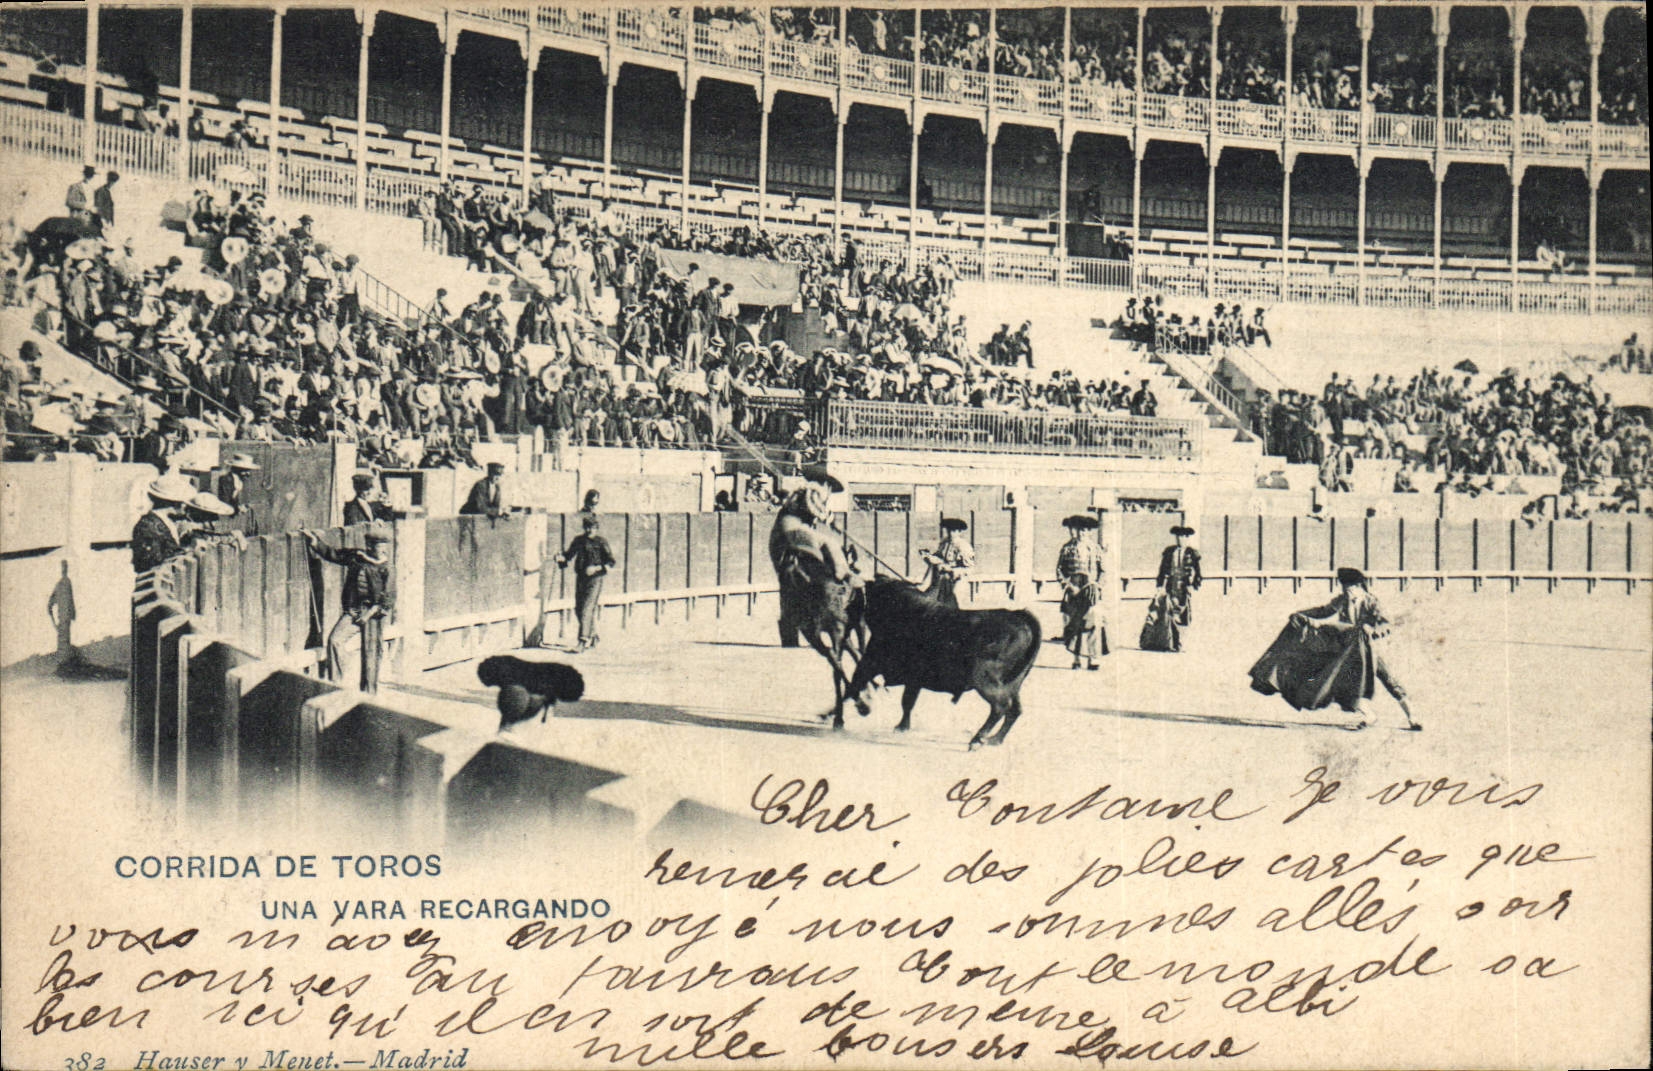 CORRIDA DE TOROS
UNA VARA RECARGANDO
Cher Je vous
remerai des jolies cartes que
vous m avez envoyé nous sommes allés voir
les courses au tauraus tout le monde va
bien ici qu'il en soit de meme à albi
mille bousers Louise
382 Hauser y Menet.—Madrid